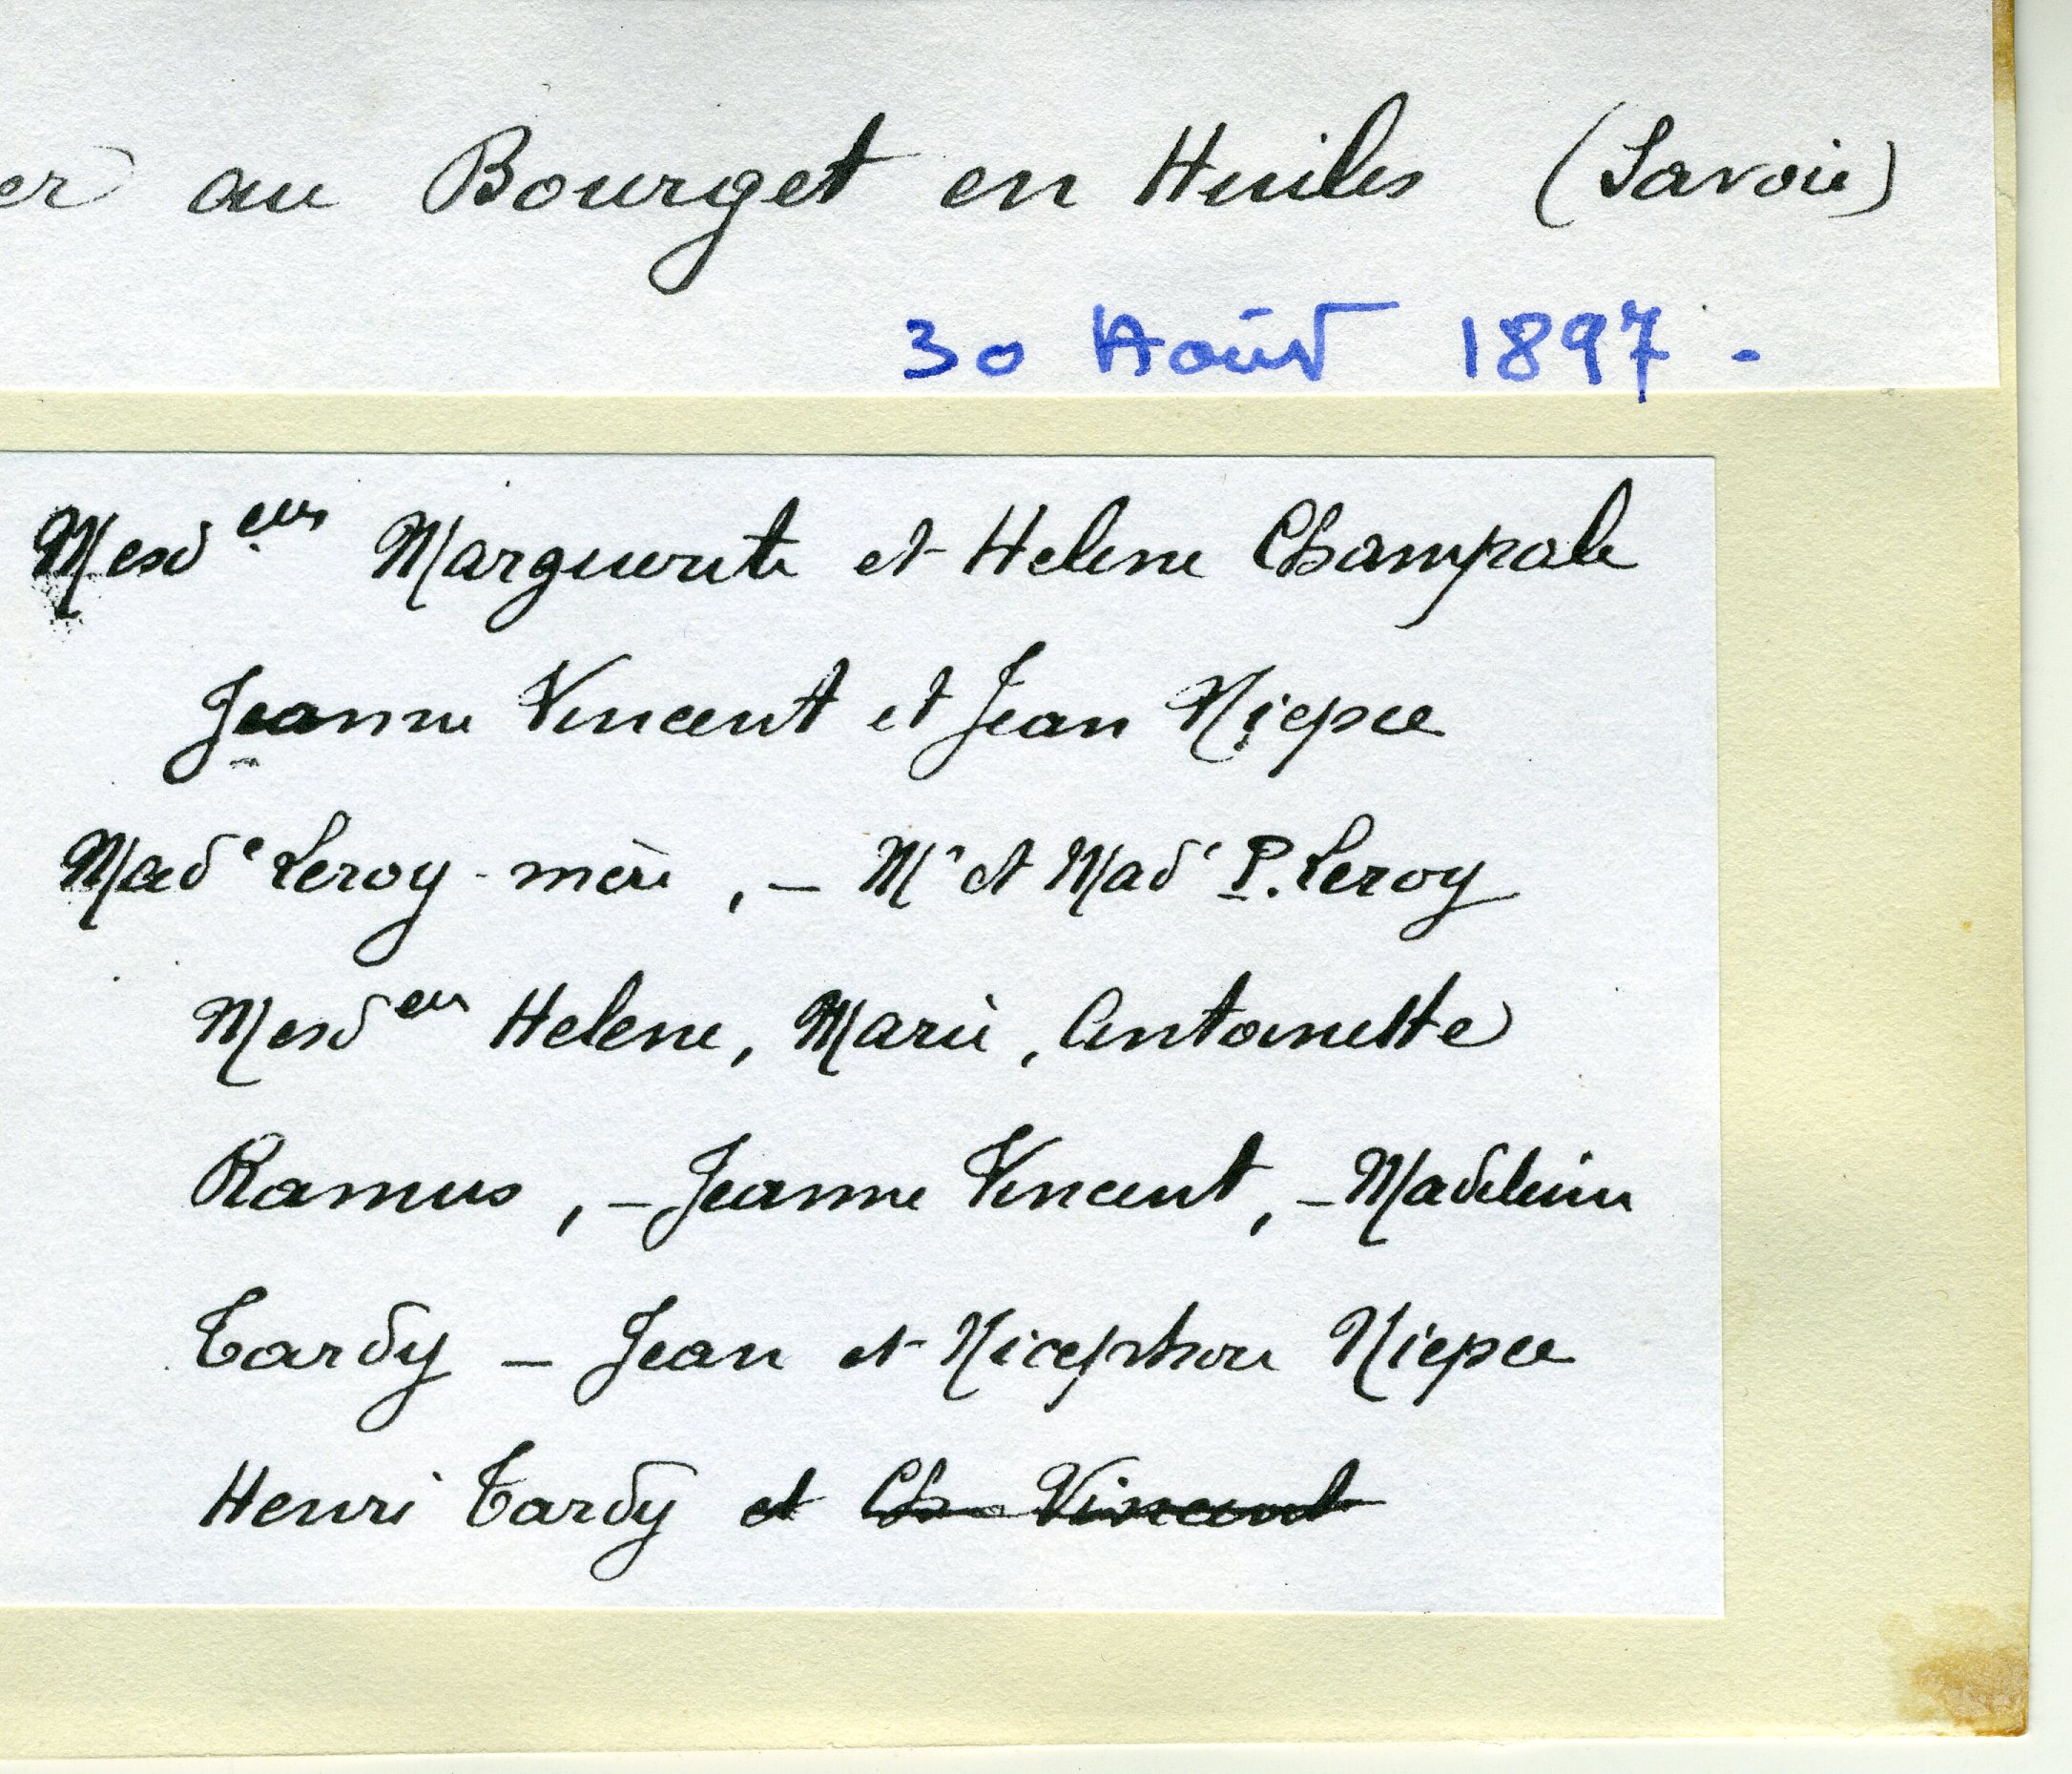 er au Bourget en Huiles (Savoie)
30 Août 1897 -
Mesd elles Marguerite et Helene Champale
Jeanne Vincent et Jean Niepce
Mad e Leroy - mère , - M r et Mad e P. Leroy
Mesd elles Helene, Marie, Antoinette
Ramus , - Jeanne Vincent, - Madeleine
Tardy - Jean et Nicephore Niepce
Henri Tardy et Ch. Vincent